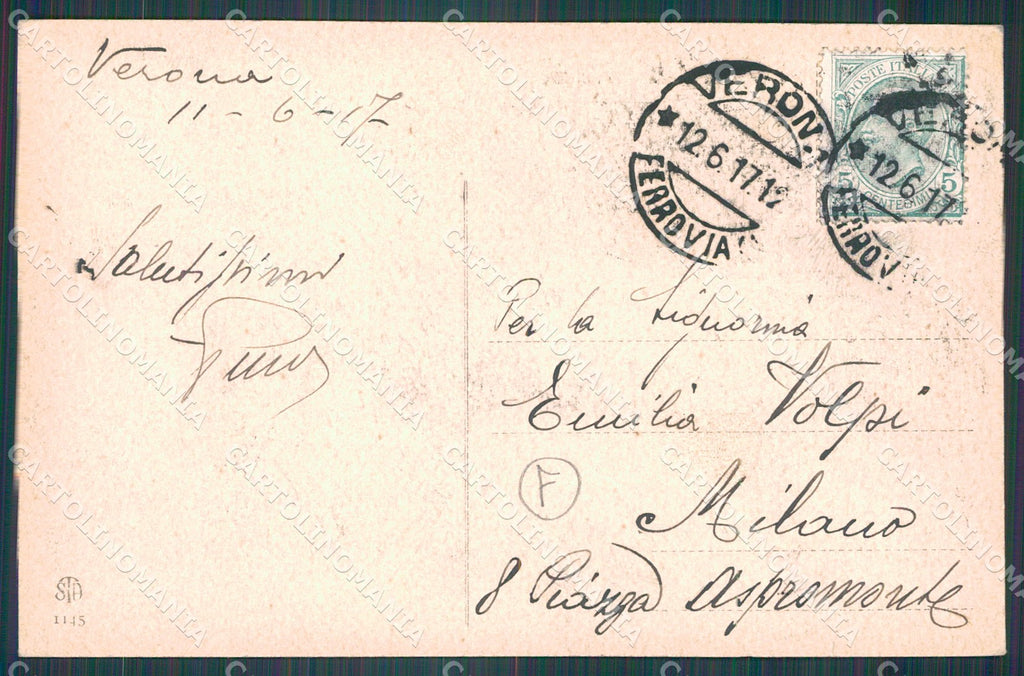 Verona
11-6-17
Salutissimi
Per la Signorina
Emilia Volpi
Milano
8 Piazza Aspromonte
F
VERONA
12.6.17.19
FERROVIA
POSTE ITALIANE
5 5
CENTESIMI
12.6.17
STA
1145
CARTOLINOMANIA